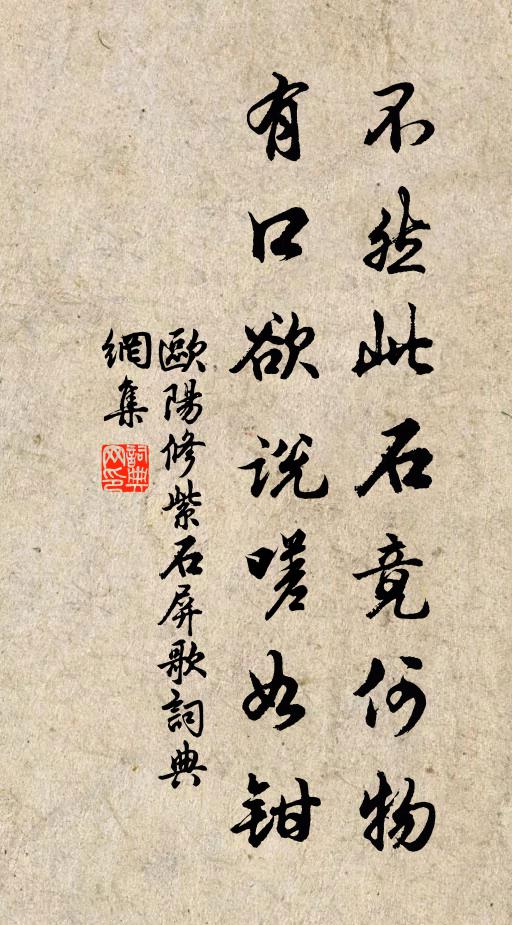 不然此石竟何物
有口欲說嗟如鉗
歐陽修紫石屏歌詞典
網集
詞典
网印